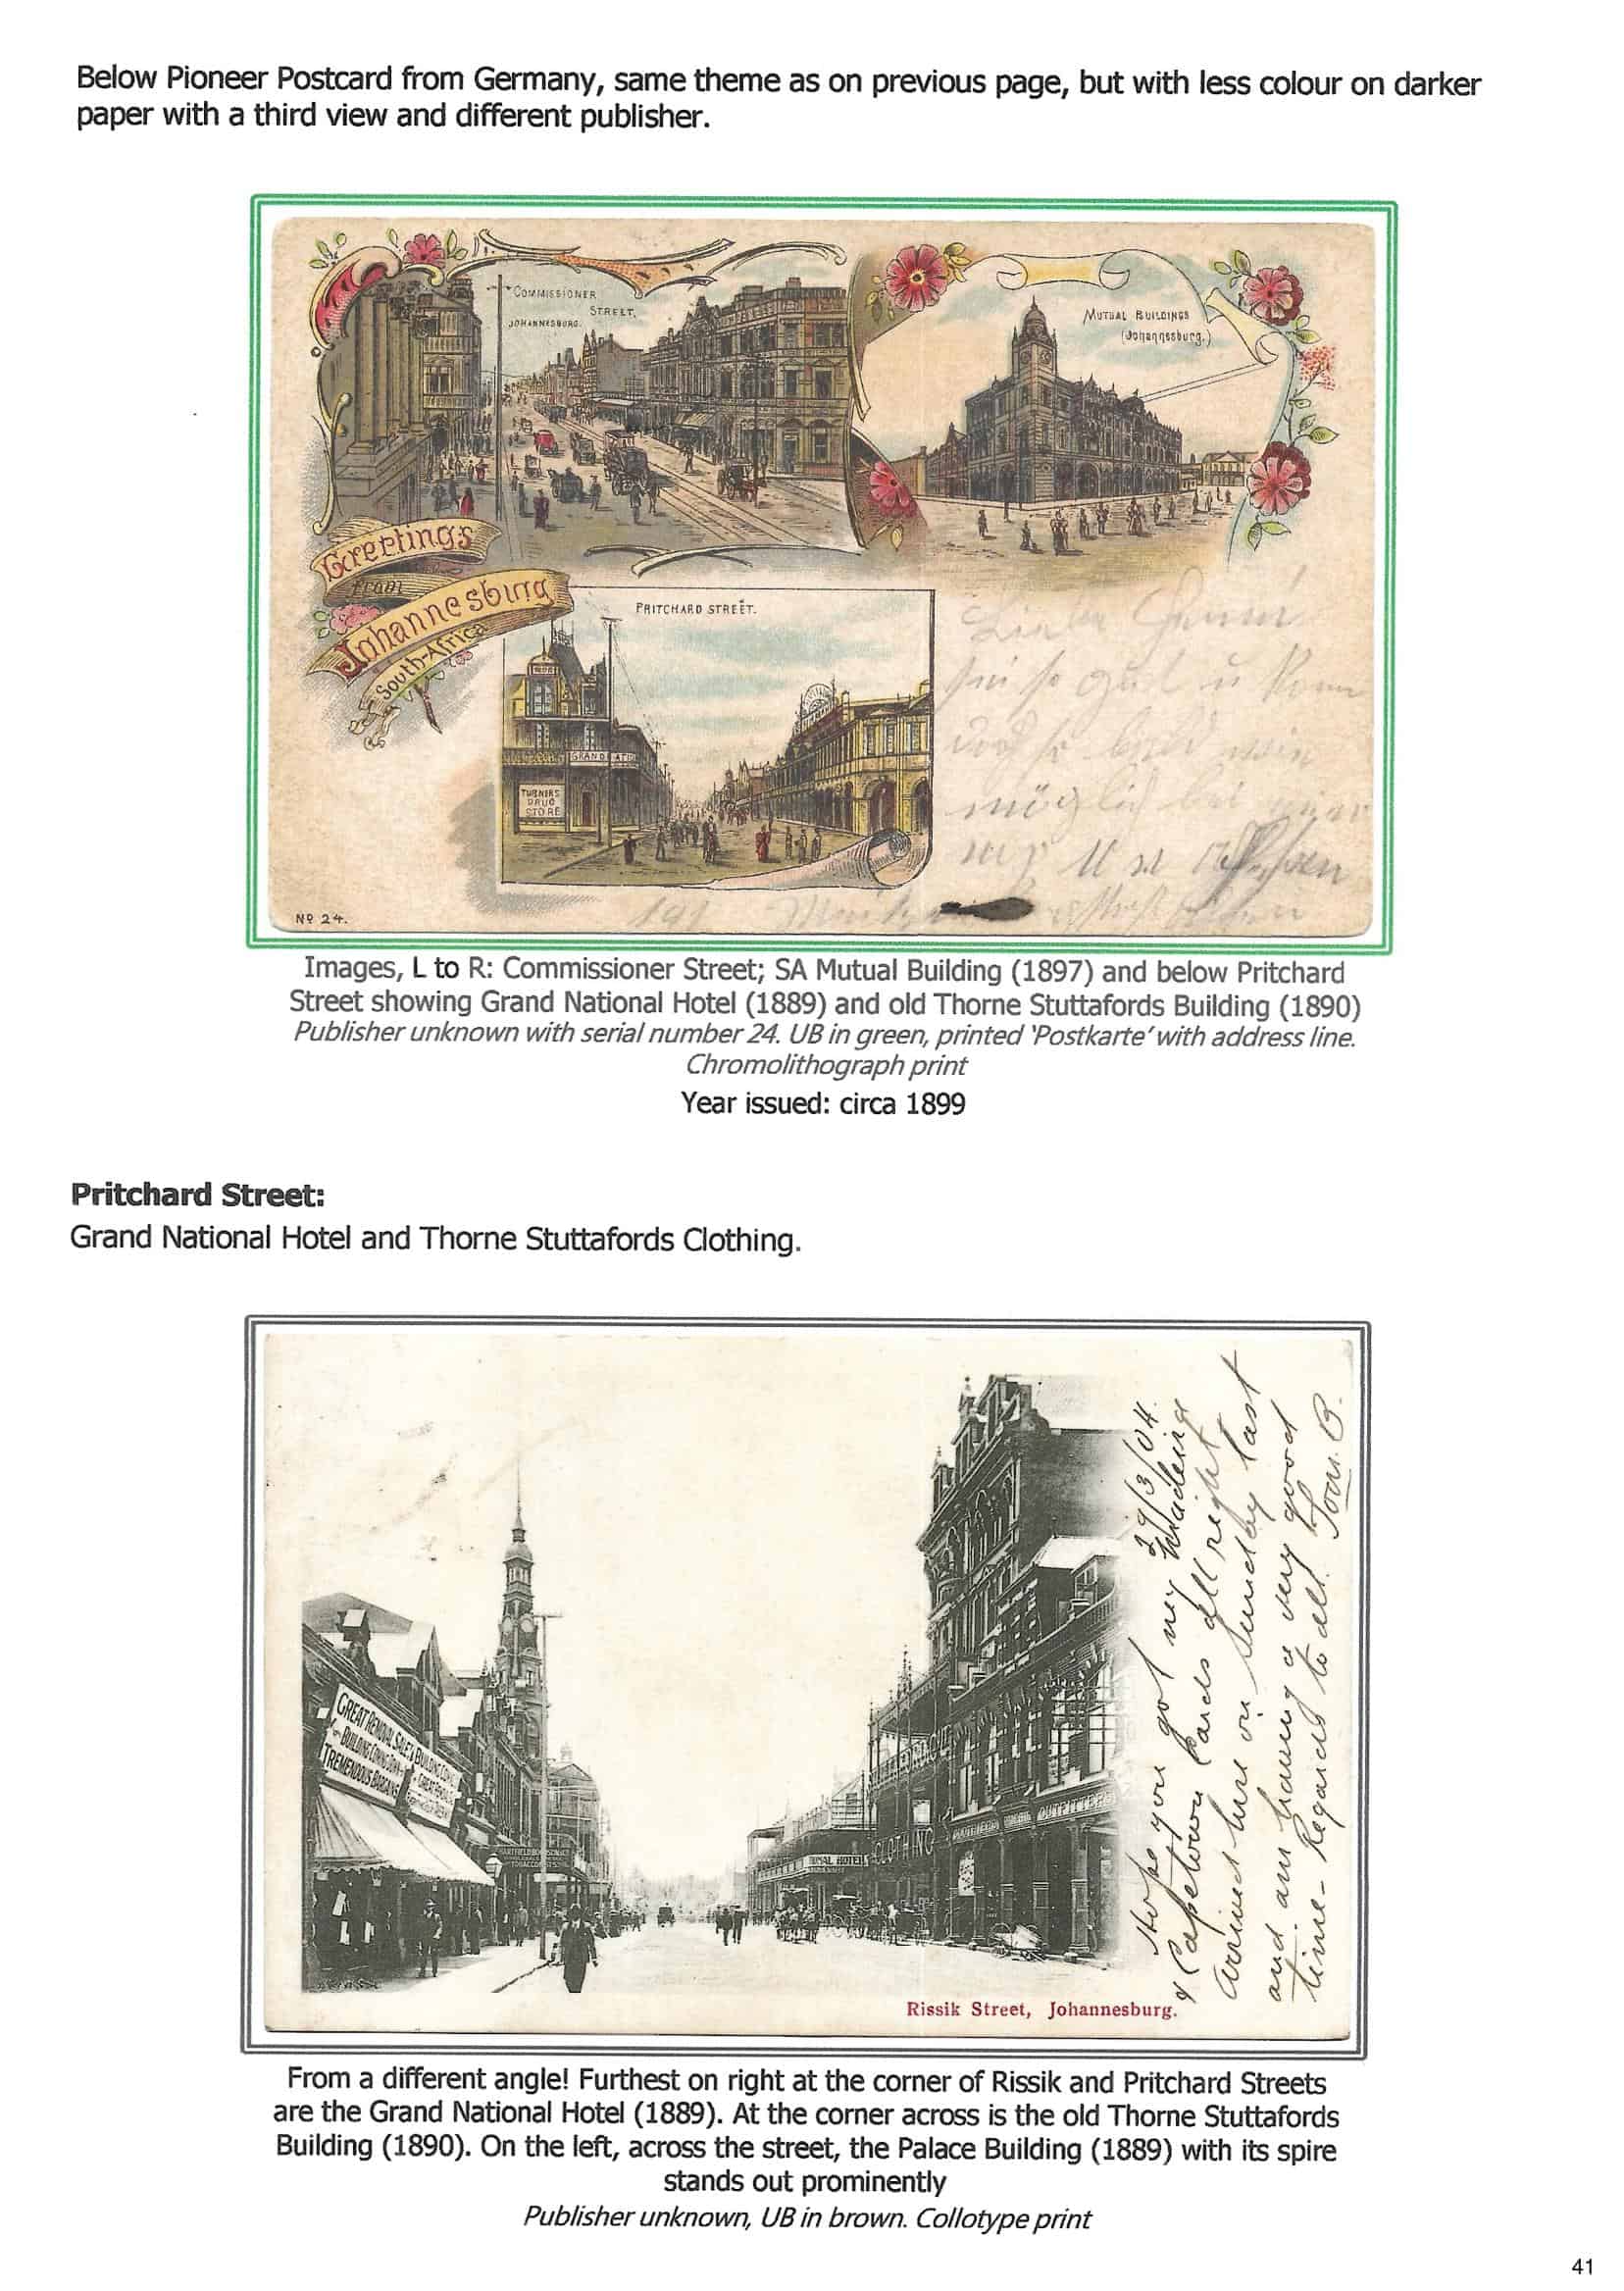 Below Pioneer Postcard from Germany, same theme as on previous page, but with less colour on darker
paper with a third view and different publisher.
COMMISSIONER
STREET,
JOHANNESBURG.
MUTUAL BUILDINGS
(Johannesburg.)
Greetings
from
Johannesburg
South-Africa
PRITCHARD STREET.
GRAND NATIO
TURNERS
DRUG
STORE
möglich
No 24.
Images, L to R: Commissioner Street; SA Mutual Building (1897) and below Pritchard
Street showing Grand National Hotel (1889) and old Thorne Stuttafords Building (1890)
Publisher unknown with serial number 24. UB in green, printed 'Postkarte' with address line.
Chromolithograph print
Year issued: circa 1899
Pritchard Street:
Grand National Hotel and Thorne Stuttafords Clothing.
GREAT REMOVAL SALE
BUILDING COMING DOWN
TREMENDOUS BARGAINS
TOBACCONISTS
IONAL HOTEL
CLOTHING
OUTFITTERS
29/3/04.
Hope you got my Madeira
& Capetown Cards all right
Arrived here on Sunday last
and am having a very good
time - Regards to all. Tom. B.
Rissik Street, Johannesburg.
From a different angle! Furthest on right at the corner of Rissik and Pritchard Streets
are the Grand National Hotel (1889). At the corner across is the old Thorne Stuttafords
Building (1890). On the left, across the street, the Palace Building (1889) with its spire
stands out prominently
Publisher unknown, UB in brown. Collotype print
41